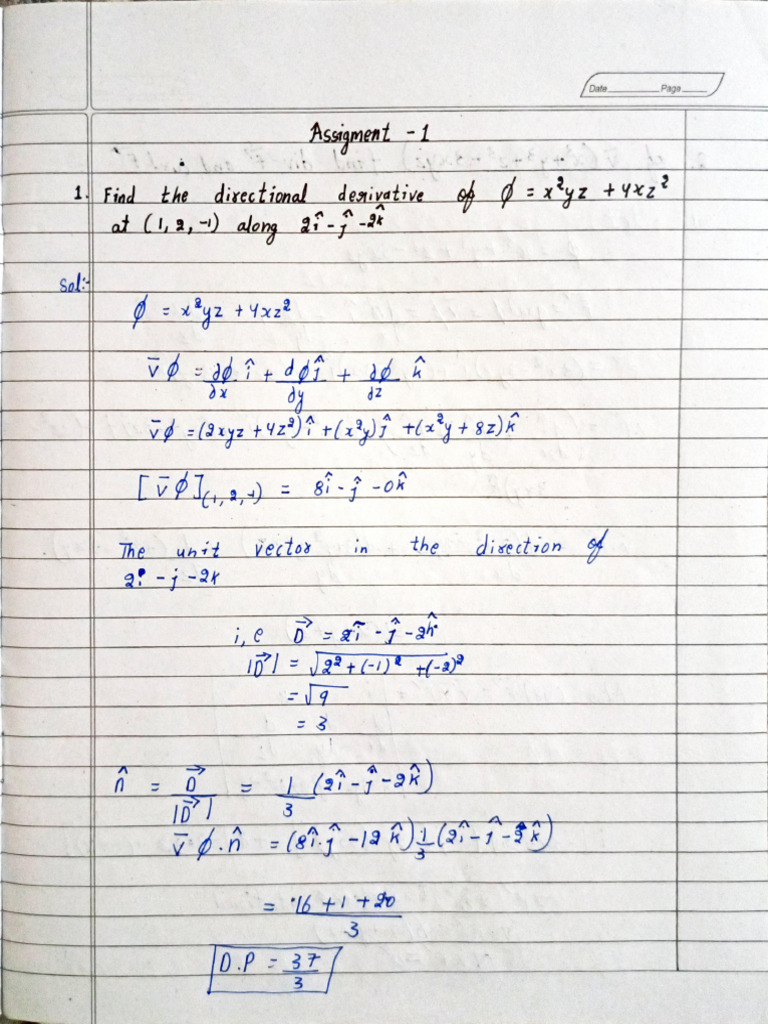 Date Page
Assigment - 1
1. Find the directional derivative of ϕ = x²yz + 4xz²
at (1, 2, -1) along 2î - ĵ - 2k̂
Sol:-
ϕ = x²yz + 4xz²
∇̄ϕ = ∂ϕ/∂x î + dϕ/∂y ĵ + ∂ϕ/∂z k̂
∇̄ϕ = (2xyz + 4z²)î + (x²y)ĵ + (x²y + 8z)k̂
[∇̄ϕ](1, 2, -1) = 8î - ĵ - 0k̂
The unit vector in the direction of
2i - j - 2k
i, e D⃗ = 2î - ĵ - 2k̂
|D⃗| = √2² + (-1)² + (-2)²
= √9
= 3
n̂ = D⃗/|D⃗| = 1/3 (2î - ĵ - 2k̂)
∇̄ϕ . n̂ = (8î . ĵ - 12k̂) 1/3 (2î - ĵ - 2k̂)
= 16 + 1 + 20/3
D.P = 37/3